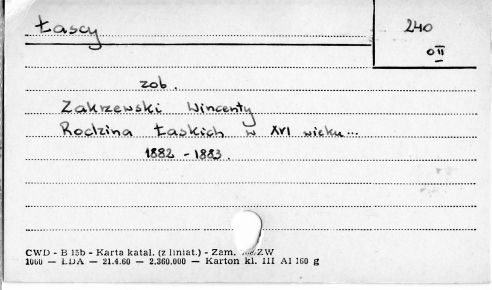 Łascy
240
OII
zob.
Zakrzewski Wincenty
Rodzina Łaskich w XVI wieku...
1882 - 1883.
CWD - B 15b - Karta katal. (z liniat.) - Zam. ZW
1060 — ŁDA — 21.4.60 — 2.360.000 — Karton kl. III A1 160 g